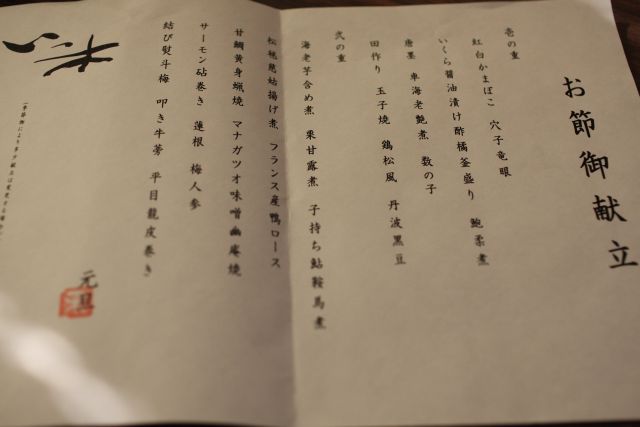 お節御献立
壱の重
紅白かまぼこ 穴子竜眼
いくら醤油漬け酢橘釜盛り 鮑柔煮
唐墨 車海老艶煮 数の子
田作り 玉子焼 鶏松風 丹波黒豆
弐の重
海老芋含め煮 栗甘露煮 子持ち鮎鞍馬煮
松毬慈姑揚げ煮 フランス産鴨ロース
甘鯛黄身蝋焼 マナガツオ味噌幽庵焼
サーモン砧巻き 蓮根 梅人参
結び熨斗梅 叩き牛蒡 平目龍皮巻き
元旦